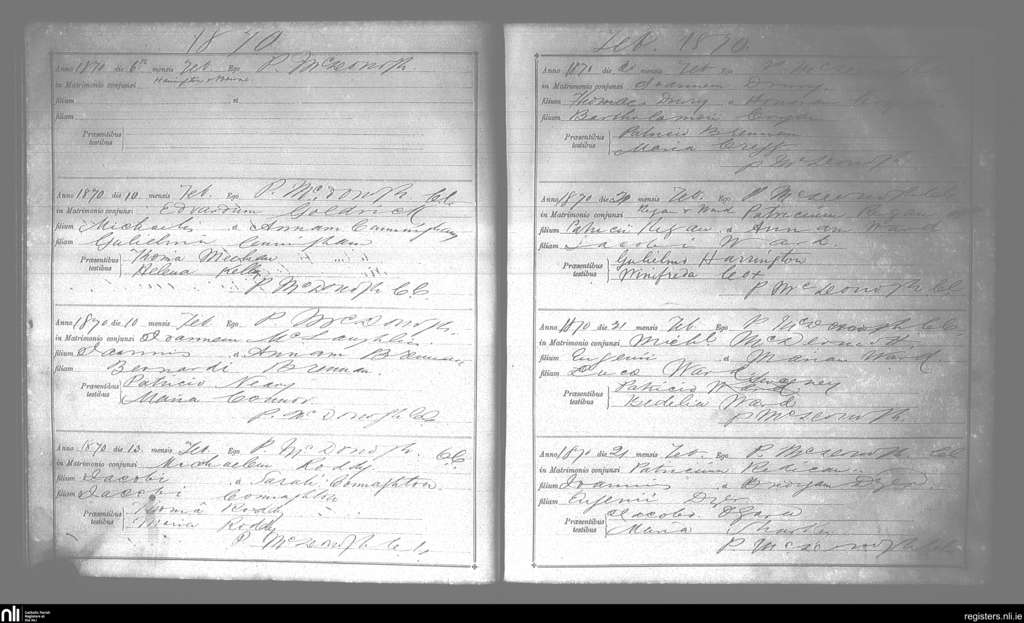 1870.
Anno 1870 die 6th mensis Feb. Ego P. McDonogh
in Matrimonio conjunxi
filium et
filiam
Præsentibus
testibus
Anno 1870 die 10. mensis Feb. Ego P. McDonogh CC
in Matrimonio conjunxi Edvardum Goldrick
filium Michaelis & Annam Cunningham
filiam Gulielmi Cunningham
Præsentibus Thoma Meehan
testibus Helena Kelly
P. McDonogh CC
Anno 1870 die 10 mensis Feb. Ego P. McDonogh.
in Matrimonio conjunxi Joannem McLaughlin
filium Joannis & Annam Brennan
filiam Bernardi Brennan.
Præsentibus Patricio Neary
testibus Maria Connor
P. McDonogh CC
Anno 1870 die 13. mensis Feb. Ego P. McDonogh. CC.
in Matrimonio conjunxi Michaelem Roddy
filium Jacobi & Sarah Connaghton.
filiam Jacobi Connaghton
Præsentibus Thoma Roddy
testibus Maria Roddy
P. McDonogh CC
Feb. 1870.
Anno 1870 die mensis Feb Ego P. McDonogh
in Matrimonio conjunxi Joannem Drury
filium Thomae Drury &
filiam Bartholamoei
Præsentibus Patricio Brennan
testibus Maria
P. McDonogh
Anno 1870 die mensis Feb. Ego P. McDonogh
in Matrimonio conjunxi Regan & Ward Patricium Regan
filium Patricii Regan & Annam Ward
filiam Jacobi Ward.
Præsentibus Gulielmo Harrington
testibus Winifreda Cox
P. McDonogh CC
Anno 1870 die 21 mensis Feb. Ego P. McDonogh CC
in Matrimonio conjunxi Michl McDermott.
filium Eugenii & Mariam Ward
filiam Luca Ward
Præsentibus Patricio Sweeney
testibus Bedelia Ward
P McDonogh.
Anno 1870 die 21 mensis Feb. Ego P. McDonogh CC
in Matrimonio conjunxi Patricium
filium Joannis & Dyer
filiam Eugenii Dyer
Præsentibus Jacobo
testibus Maria
P. McDonogh CC
nli
Catholic Parish
Registers at
the NLI
registers.nli.ie